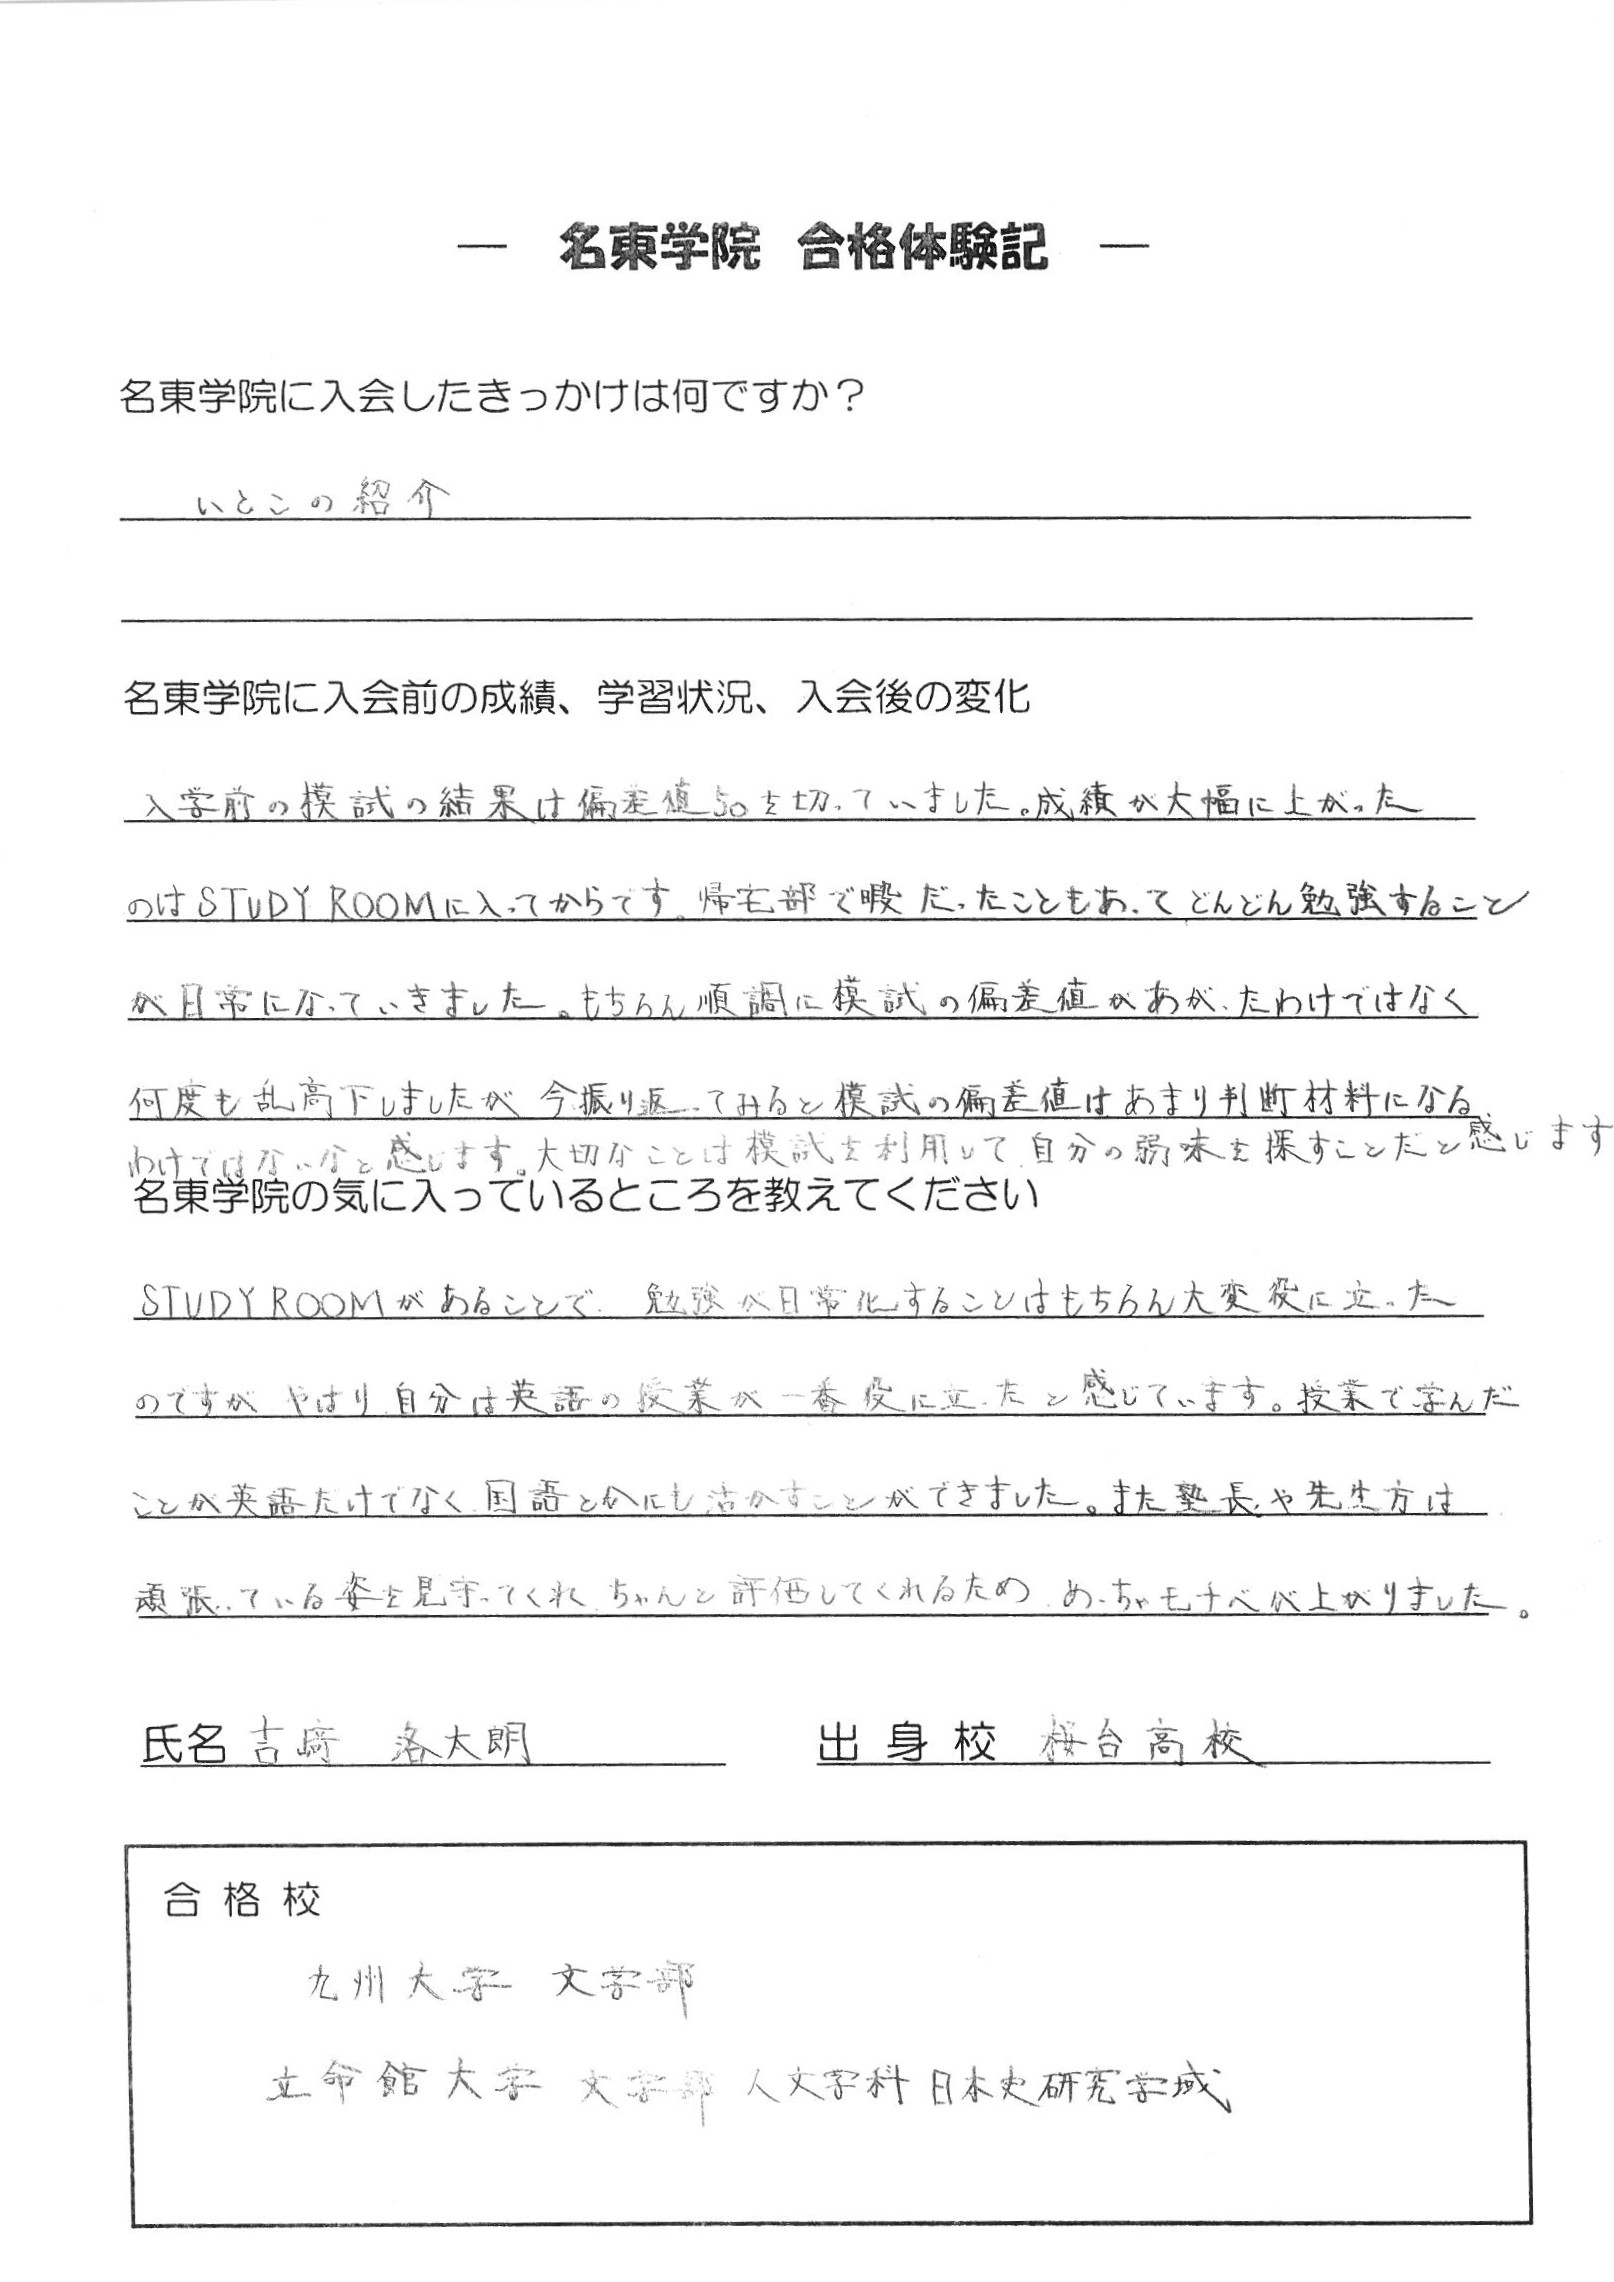 ― 名東学院 合格体験記 ―
名東学院に入会したきっかけは何ですか？
いとこの紹介
名東学院に入会前の成績、学習状況、入会後の変化
入学前の模試の結果は偏差値50を切っていました。成績が大幅に上がった
のはSTUDY ROOMに入ってからです。帰宅部で暇だったこともあってどんどん勉強すること
が日常になっていきました。もちろん順調に模試の偏差値があがったわけではなく
何度も乱高下しましたが今振り返ってみると模試の偏差値はあまり判断材料になる
わけではないなと感じます。大切なことは模試を利用して自分の弱味を探すことだと感じます
名東学院の気に入っているところを教えてください
STUDY ROOMがあることで、勉強が日常化することはもちろん大変役に立った
のですが やはり自分は英語の授業が一番役に立ったと感じています。授業で学んだ
ことが英語だけでなく国語とかにも活かすことができました。また塾長や先生方は
頑張っている姿を見守ってくれ、ちゃんと評価してくれるため、めっちゃモチベが上がりました。
氏名 吉﨑 洛太朗 出身校 桜台高校
合格校
九州大学 文学部
立命館大学 文学部 人文学科 日本史研究学域